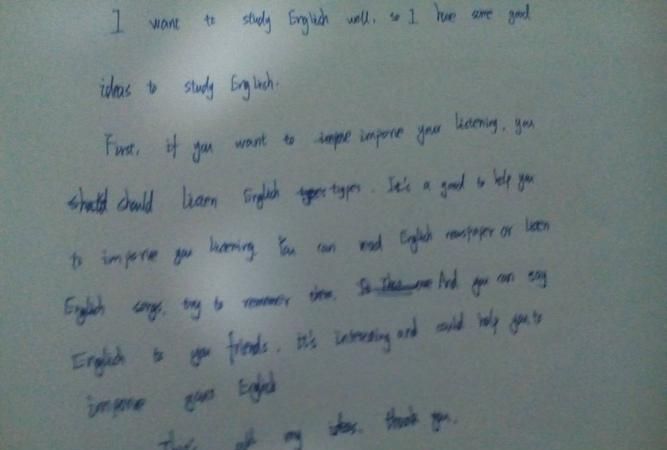 I want to study English well, so I have some good
ideas to study English.
First, if you want to improve your listening, you
should learn English types. It's a good to help you
to improve you listening. You can read English newspaper or listen
English songs, try to remember them. And you can say
English to you friends, it's interesting and could help you to
improve your English
my ideas. thank you.